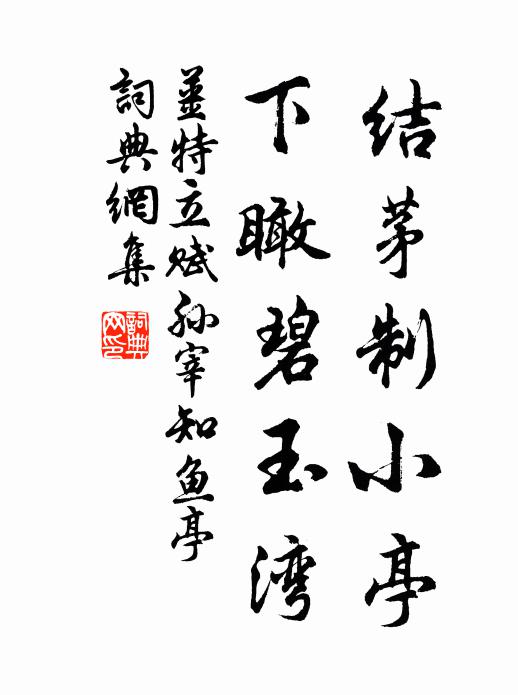 结茅制小亭
下瞰碧玉湾
姜特立赋孙宰知鱼亭
詞典網集
詞典网印